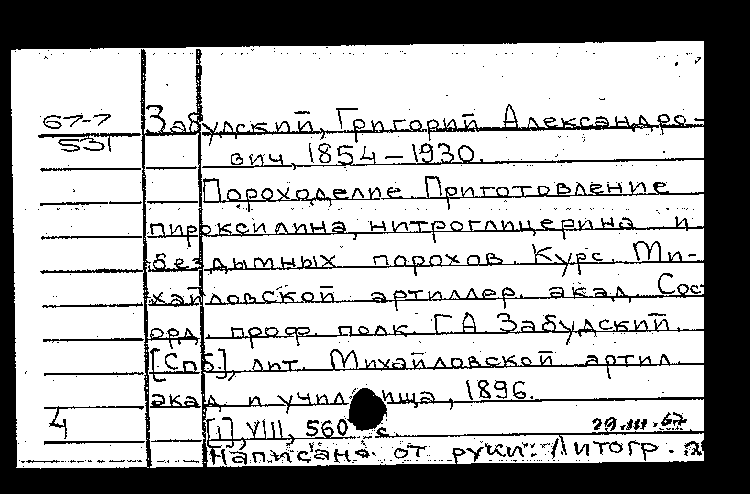 67-7
531
Забудский, Григорий Александро-
вич, 1854-1930.
Пороходелие. Приготовление
пироксилина, нитроглицерина и
бездымных порохов. Курс Ми-
хайловской артиллер. акад. Сос
орд. проф. полк. Г.А. Забудский.
[Спб.], лит. Михайловской артил.
акад. и училища, 1896.
4
[1], VIII, 560 с.
29.III.67
Написана от руки. Литогр.